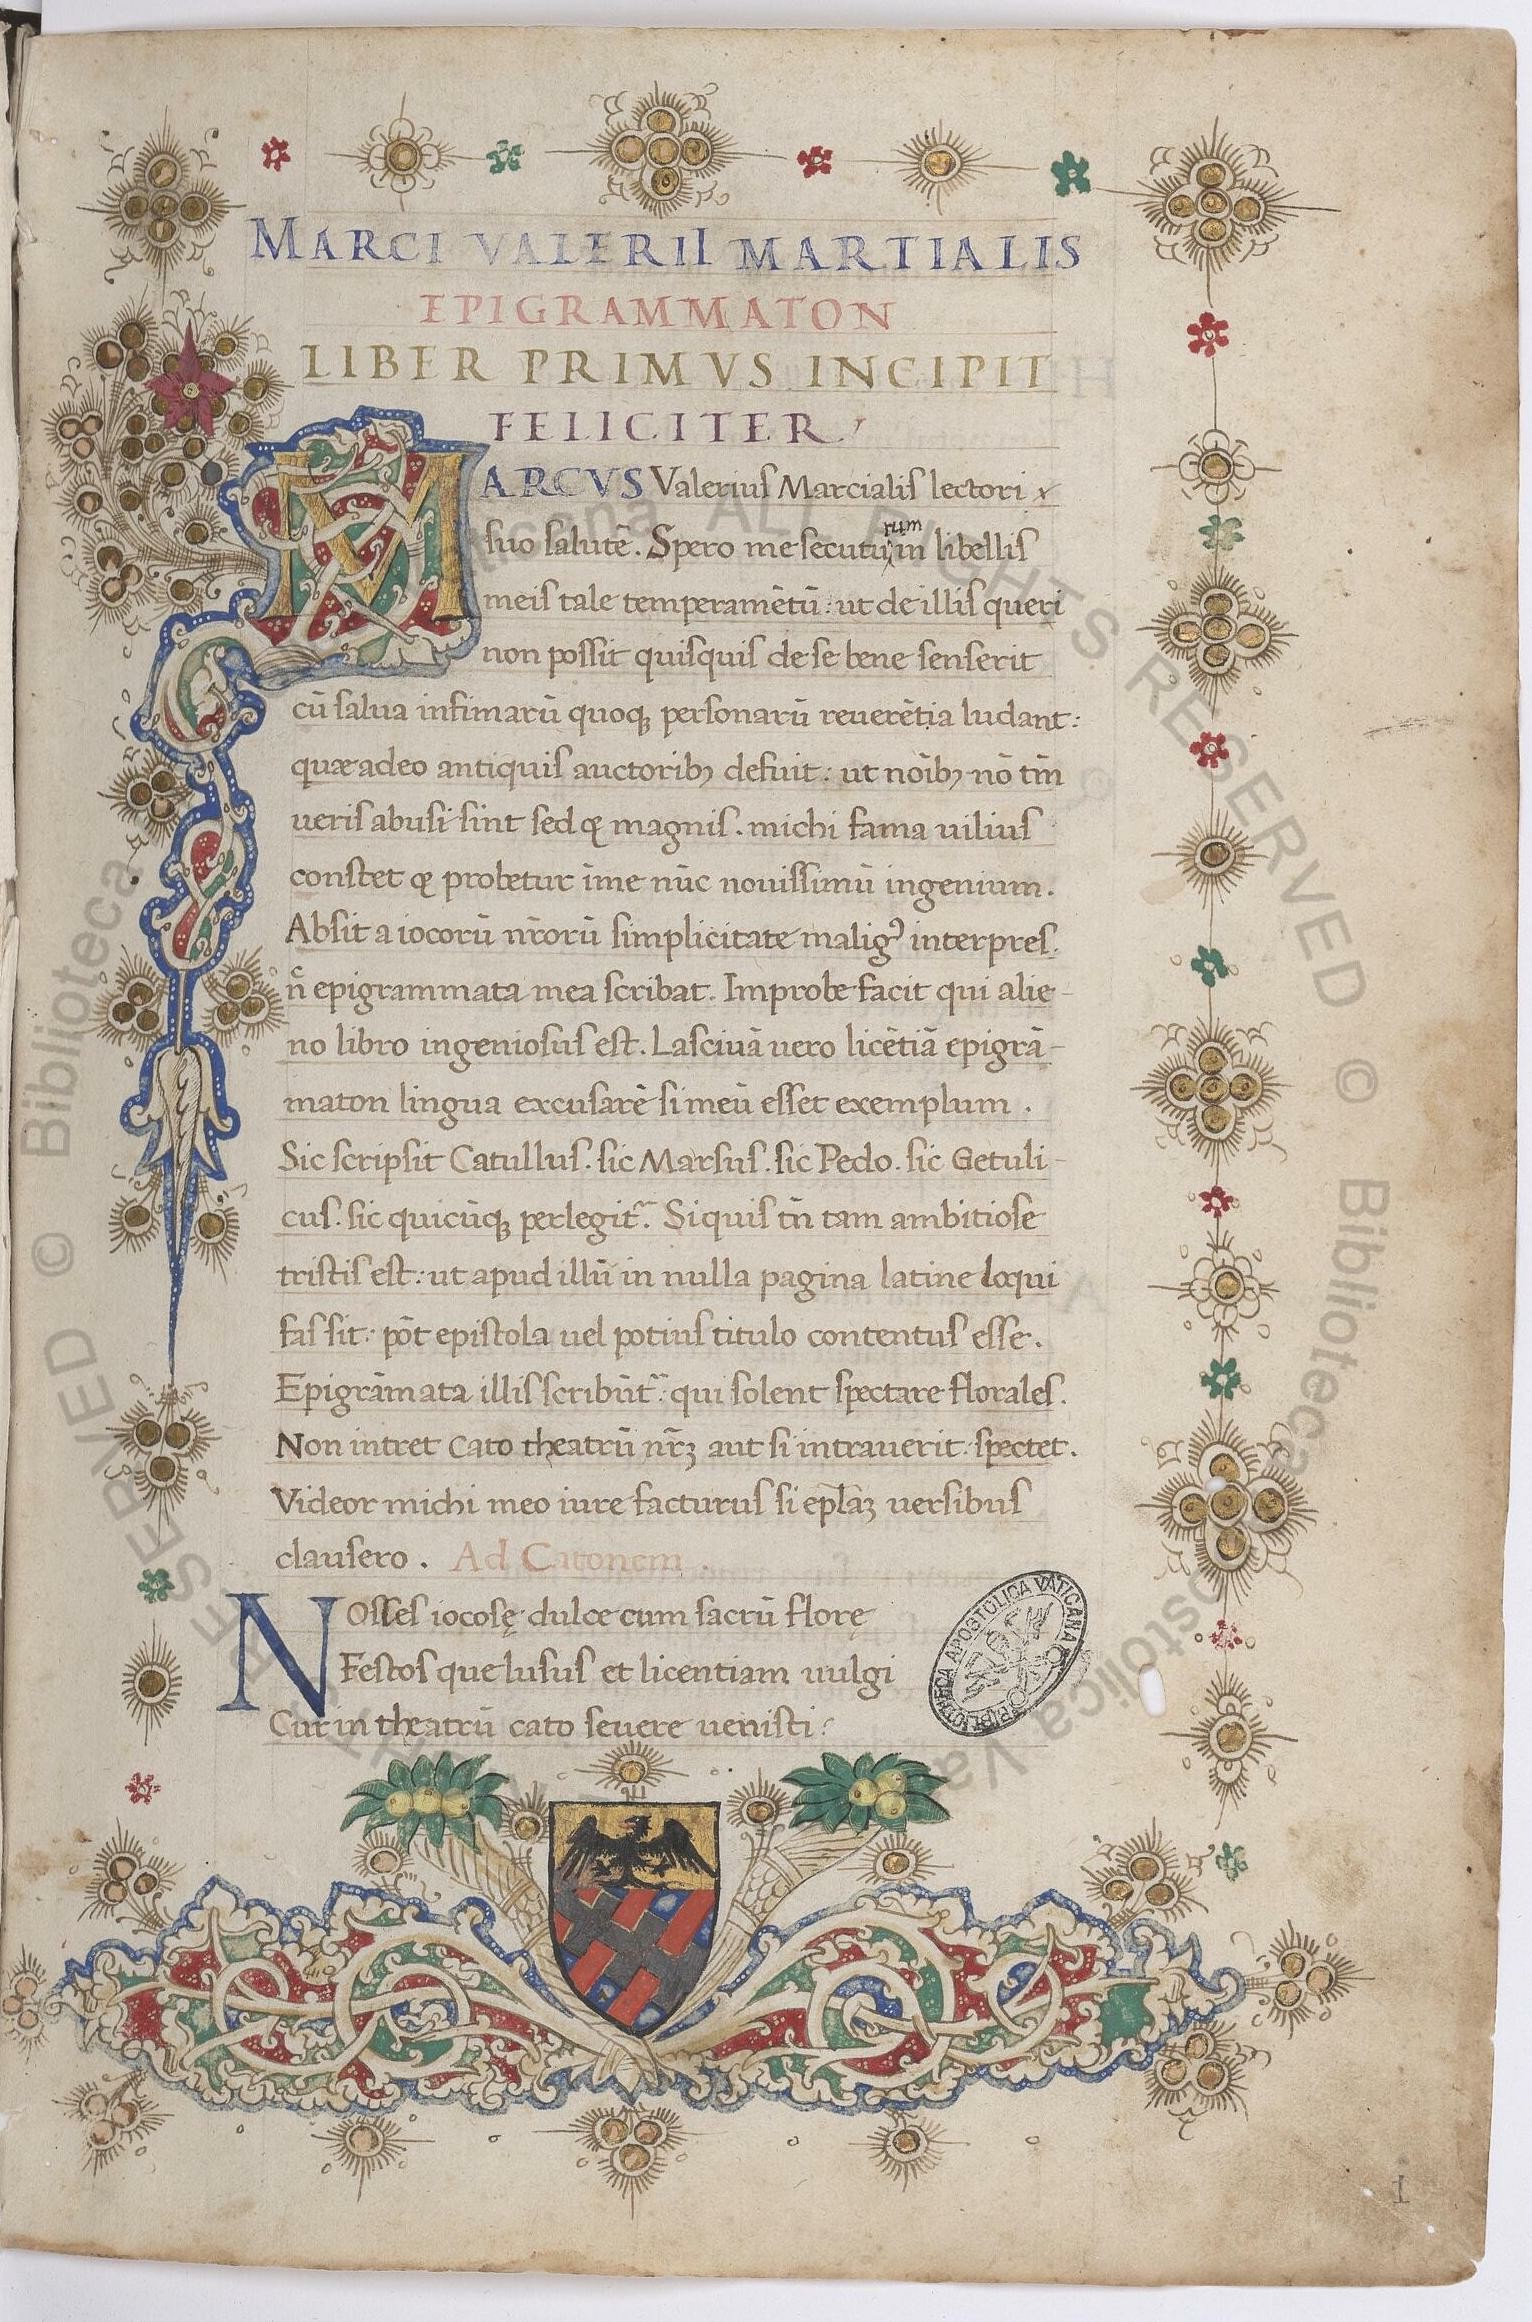 MARCI VALERII MARTIALIS
EPIGRAMMATON
LIBER PRIMVS INCIPIT
FELICITER
MARCVS Valerius Marcialis lectori
suo salutē. Spero me secutu rum in libellis
meis tale temperamētū: ut de illis queri
non possit quisquis de se bene senserit
cū salua infimarū quoqꝫ personarū reuerētia ludant:
quæ adeo antiquis auctoribꝫ defuit: ut nōibꝫ nō tm̄
ueris abusi sint sed & magnis. michi fama uilius
constet & probetur ī me nūc nouissimū ingenium.
Absit a iocorū nr̄orū simplicitate maligꝰ interpres.
n̄ epigrammata mea scribat. Improbe facit qui alie-
no libro ingeniosus est. Lasciuā uero licētiā epigrā-
maton lingua excusarē si meū esset exemplum.
Sic scripsit Catullus. sic Marsus. sic Pedo. sic Getuli-
cus. sic quicūqꝫ perlegit᷑. Siquis tn̄ tam ambitiose
tristis est: ut apud illū in nulla pagina latine loqui
fas sit: pōt epistola uel potius titulo contentus esse.
Epigrāmata illis scribūt᷑: qui solent spectare florales.
Non intret Cato theatrū nr̄ꝫ aut si intrauerit: spectet.
Videor michi meo iure facturus si ep̄laꝫ uersibus
clausero. Ad Catonem.
NOsses iocosę dulce cum sacrū florę
Festos que lusus et licentiam uulgi
Cur in theatrū cato seuere uenisti:
BIBLIOTECA APOSTOLICA VATICANA
1
© Biblioteca Apostolica Vaticana ALL RIGHTS RESERVED